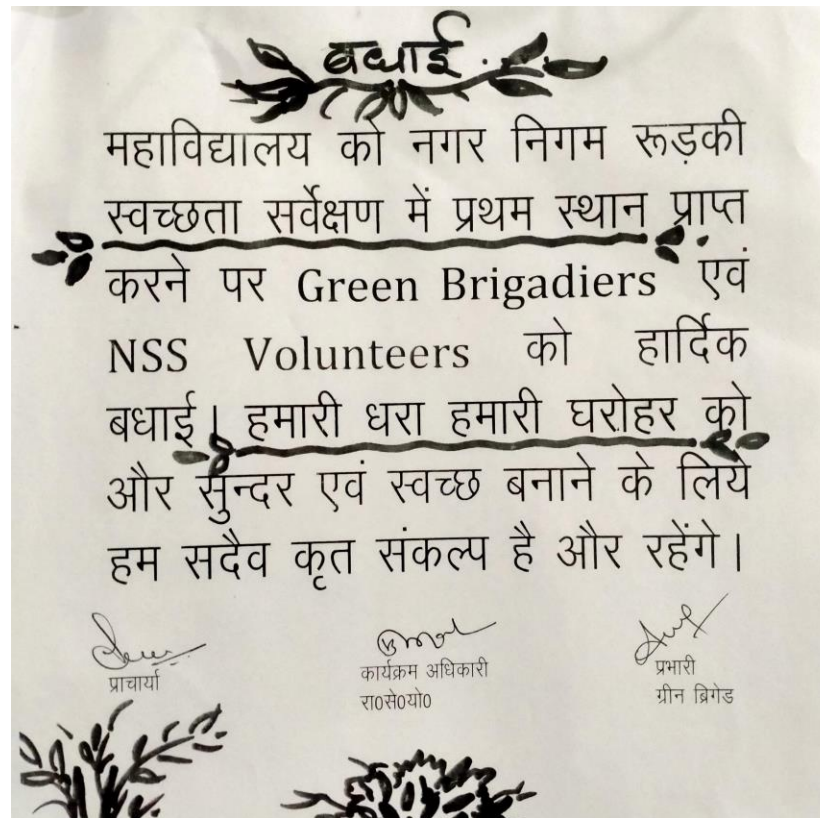 बधाई
महाविद्यालय को नगर निगम रूड़की
स्वच्छता सर्वेक्षण में प्रथम स्थान प्राप्त
करने पर Green Brigadiers एवं
NSS Volunteers को हार्दिक
बधाई। हमारी धरा हमारी घरोहर को
और सुन्दर एवं स्वच्छ बनाने के लिये
हम सदैव कृत संकल्प है और रहेंगे।
प्राचार्या
कार्यक्रम अधिकारी
रा०से०यो०
प्रभारी
ग्रीन ब्रिगेड